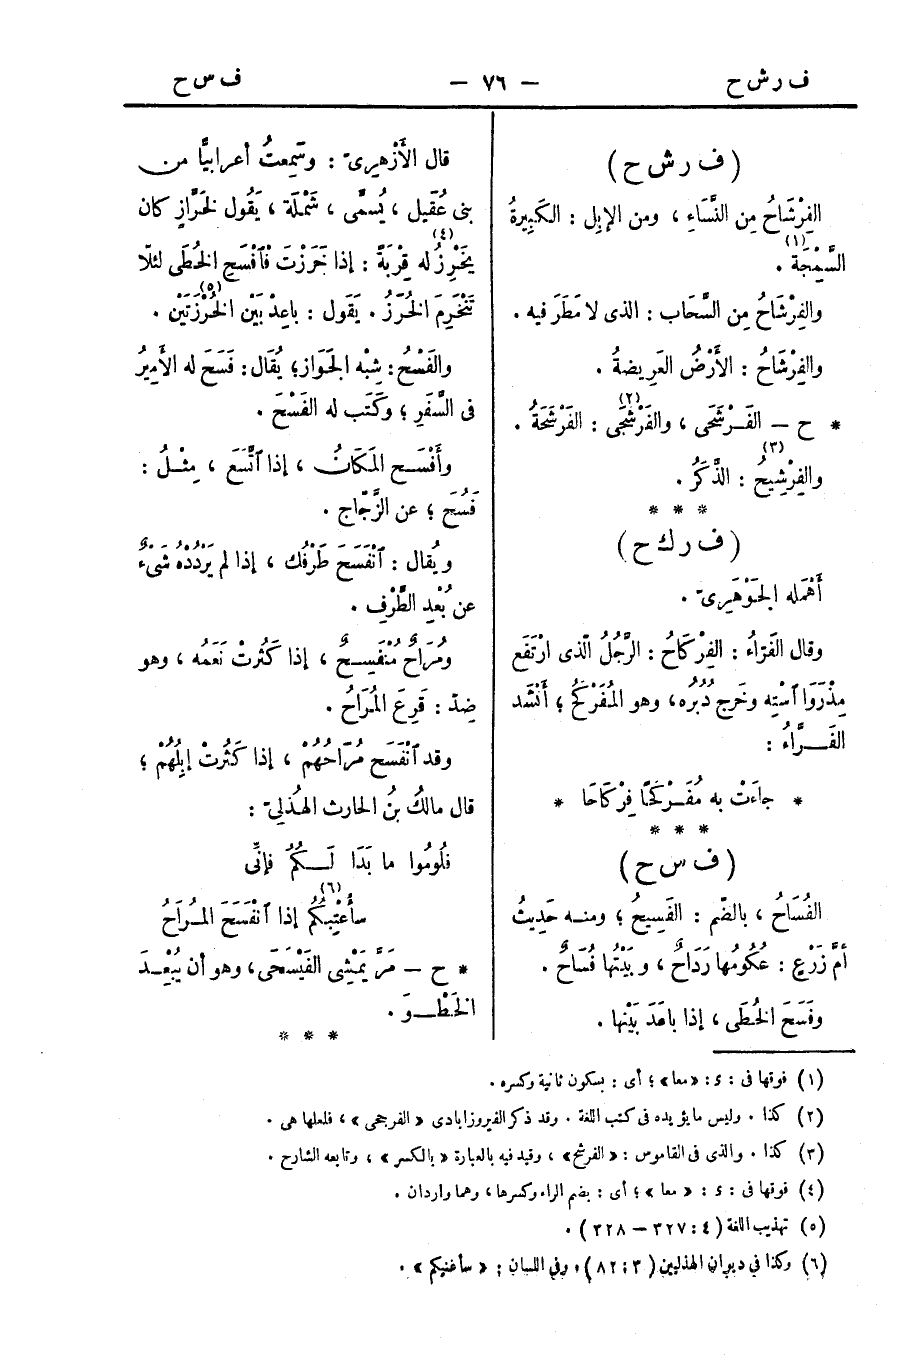 ف ر ش ح
— ٧٦ —
ف س ح
( ف ر ش ح )
الفِرْشَاحُ مِن النِّسَاءِ ، ومن الإبِل : الكَبِيرةُ
السَّمِجَة (١) .
والفِرْشَاحُ مِن السَّحَاب : الذى لا مَطَرَ فيه .
والفِرْشَاحُ : الأَرْضُ العَرِيضةُ .
* ح – الفَـرْشَحَى ، والفَرْشَحِى (٢) : الفَرْشَحَةُ .
والفِرْشِيحُ (٣) : الذَّكَرُ .
* * *
( ف ر ك ح )
أَهْمَله الجَوْهَرِىّ .
وقال الفَرّاءُ : الفِرْكَاحُ : الرَّجُلُ الّذى ارْتَفَع
مِذْرَوَا ٱسْتِه وخَرج دُبُرُه ، وهو المُفَرْكَحُ ؛ أَنْشَد
الفَـــرَّاءُ :
* جاءَتْ به مُفَـرْكَحًا فِرْكَاحَا *
* * *
( ف س ح )
الفُسَاحُ ، بالضّم : الفَسِيحُ ؛ ومنـه حَدِيثُ
أمّ زَرْعٍ : عُكُومُها رَدَاحٌ ، وبَيْتُها فُسَاحٌ .
وفَسَحَ الخُطَى ، إذا باعَدَ بَيْنها .
قال الأَزْهرِىّ : وسَمِعتُ أعرابيًّا من
بنى عُقَيل ، يُسمَّى ، شَمْلَة ، يَقُول لخَرَّازٍ كان
يَخْرِزُ (٤) له قِرْبَةً : إذا خَرَزْتَ فَٱفْسَحِ الخُطَى لئلّا
تَنْخَرِمَ الخُرَزُ . يَقول : باعِدْ بَيْن الخُرْزَتَيْن (٥) .
والفَسْحُ : شِبْه الجَوَاز؛ يُقَال : فَسَحَ له الأَمِيرُ
فى السَّفَرِ ؛ وكَتَب له الفَسْحَ .
وأَفْسَـح المَكَانُ ، إذا ٱتَّسَعَ ، مِثْـلُ :
فَسُحَ ؛ عن الزَّجّاج .
ويُقال : ٱنْفَسَحَ طَرْفُك ، إذا لم يَرْدُدْه شَىْءٌ
عن بُعْدِ الطَّرْفِ .
ومُرَاحٌ مُنْفَسِـحٌ ، إذا كَثُرتْ نَعَمُه ، وهو
ضِدّ : قَرِعَ المُرَاحُ .
وقد ٱنْفَسَح مُرَاحُهُمْ ، إذا كَثُرتْ إبِلُهُمْ ؛
قال مالكُ بنُ الحارث الهُذلىّ :
فلُومُوا ما بَدَا لَـكُمُ فإنِّى
سأُعْتِبُكُم (٦) إذا ٱنْفَسَحَ المُرَاحُ
* ح – مَرَّ يَمْشِى الفَيْسَحَى، وهو أن يُبْعِـدَ
الخَطْـوَ .
* * *
(١) فوقها فى : ى : « معا » ؛ أى : بسكون ثانية وكسره .
(٢) كذا . وليس ما يؤيده فى كتب اللغة . وقد ذكر الفيروزابادى « الفرحى » ، فلعلها هى .
(٣) كذا . والذى فى القاموس : « الفرشح » ، وقيد فيه بالعبارة « بالكسر » ، وتابعه الشارح .
(٤) فوقها فى : ى : « معا » ؛ أى : بضم الراء وكسرها ، وهما واردان .
(٥) تهذيب اللغة ( ٤ : ٣٢٧ – ٣٢٨ ) .
(٦) وكذا فى ديوان الهذليين ( ٣ : ٨٢ ) ، وفى اللسان : « سأغنيكم » .